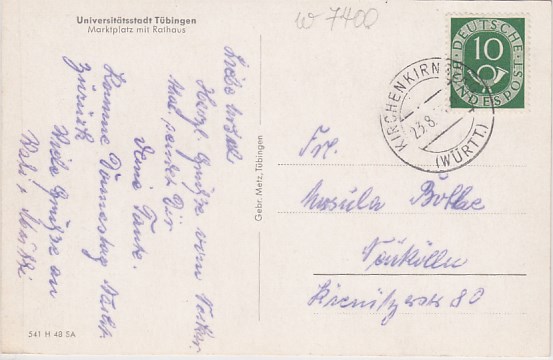 Universitätsstadt Tübingen
Marktplatz mit Rathaus
W 7400
DEUTSCHE BUNDESPOST
10
KIRCHENKIRN
23.8.
(WÜRTT.)
Liebe Ursel
Herzl. Grüße vom
Und Dir
Deine Tante.
Komme Donnerstag Nachts
zurück
Viele Grüße an
Mutti
Gebr. Metz, Tübingen
Frl.
Ursula Bothe
Neukölln
80
541 H 48 SA